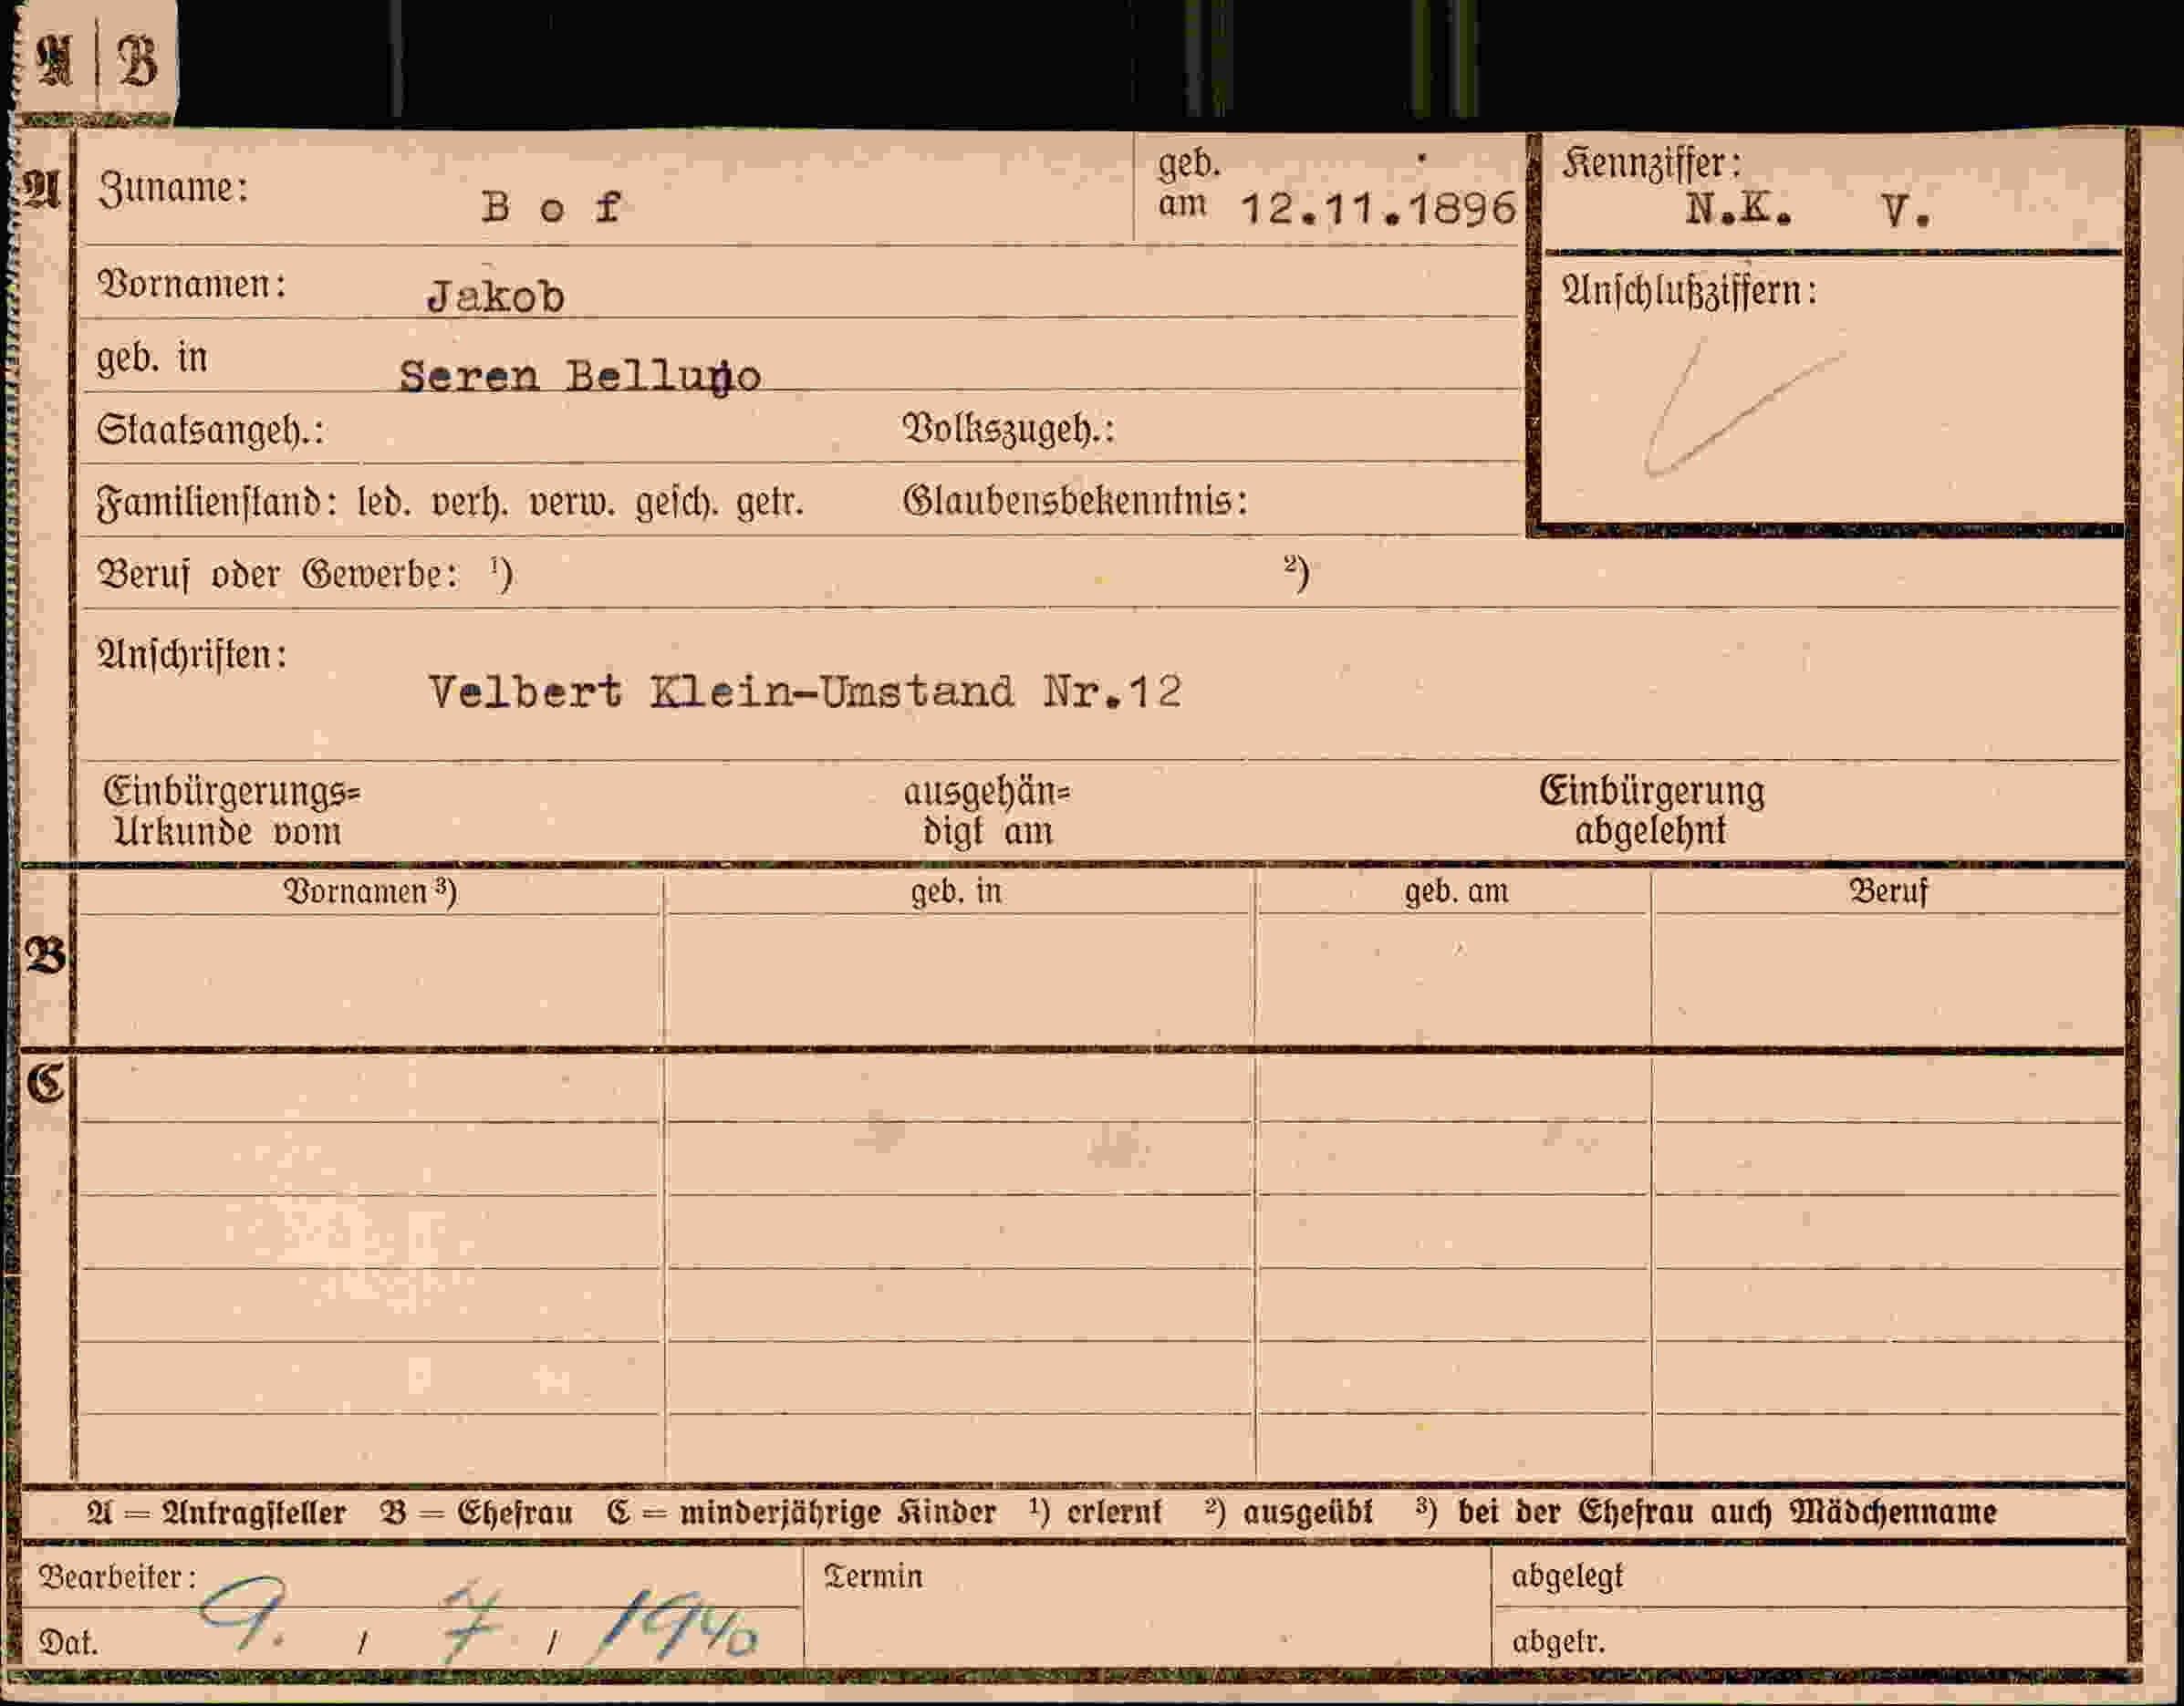 A | B
A Zuname: Bof geb. am 12.11.1896 Kennziffer: N.K. V.
Vornamen: Jakob Anschlußziffern:
geb. in Seren Belluno
Staatsangeh.: Volkszugeh.:
Familienstand: led. verh. verw. gesch. getr. Glaubensbekenntnis:
Beruf oder Gewerbe: ¹) ²)
Anschriften:
Velbert Klein-Umstand Nr.12
Einbürgerungs= ausgehän= Einbürgerung
Urkunde vom digt am abgelehnt
Vornamen ³) geb. in geb. am Beruf
B
C
A = Antragsteller B = Ehefrau C = minderjährige Kinder ¹) erlernt ²) ausgeübt ³) bei der Ehefrau auch Mädchenname
Bearbeiter: Termin abgelegt
Dat. 9. / 7 / 1940 abgetr.